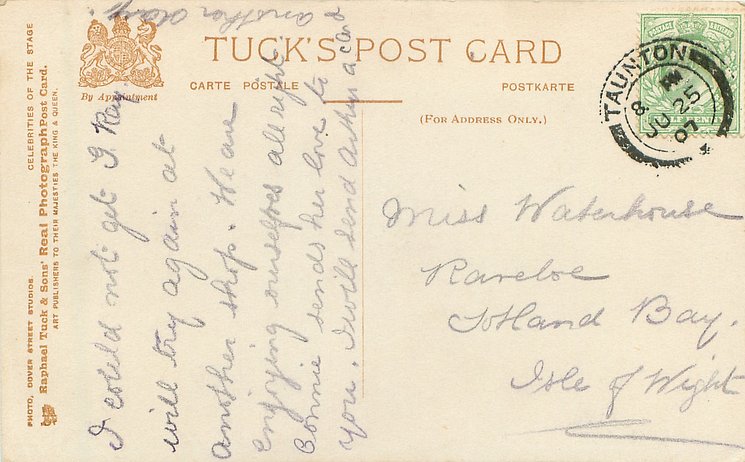 PHOTO, DOVER STREET STUDIOS. CELEBRITIES OF THE STAGE
Raphael Tuck & Sons' Real Photograph Post Card.
ART PUBLISHERS TO THEIR MAJESTIES THE KING & QUEEN.
By Appointment
TUCK'S POST CARD
CARTE POSTALE POSTKARTE
(FOR ADDRESS ONLY.)
TAUNTON
8
JU 25
07
HALF PENNY
I could not get G. Ray
will try again at
another shop. We are
enjoying ourselves all right
Connie sends her love to
you. I will send Arthur a card
another day.
Miss Waterhouse
Raveloe
Totland Bay.
Isle of Wight